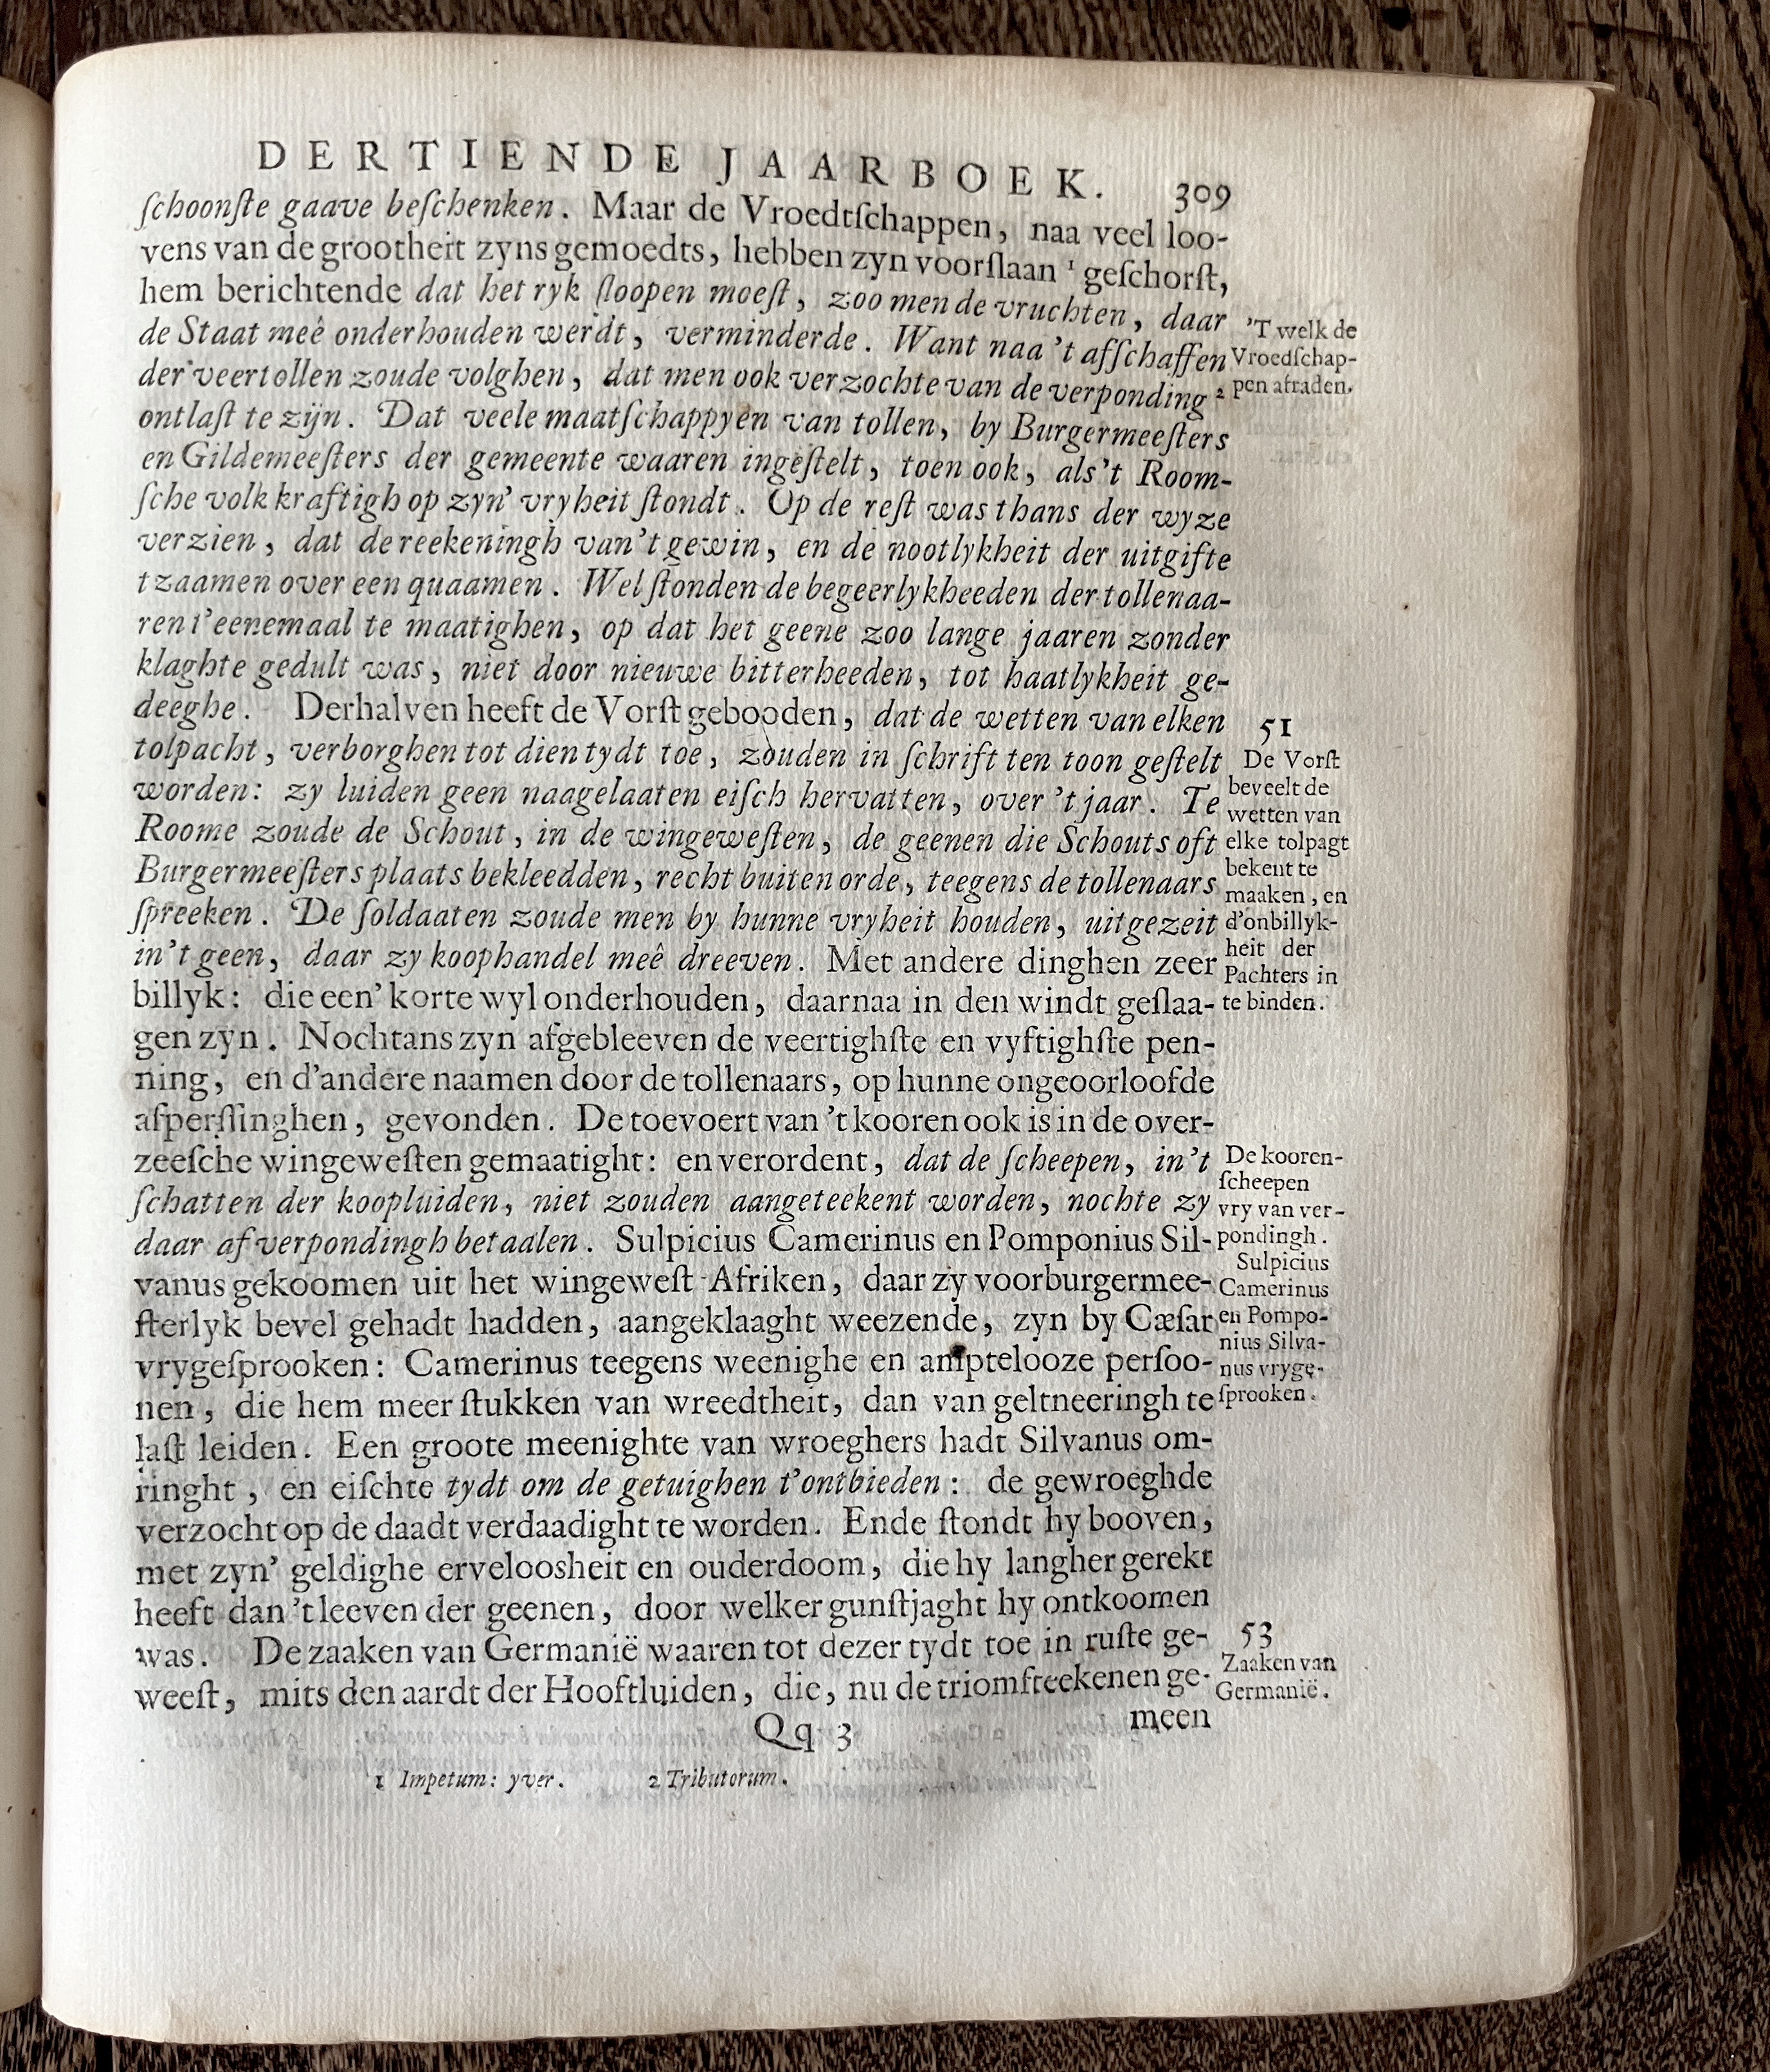 DERTIENDE JAARBOEK. 309
ſchoonſte gaave beſchenken. Maar de Vroedtſchappen, naa veel loo-
vens van de grootheit zyns gemoedts, hebben zyn voorſlaan ¹ geſchorſt,
hem berichtende dat het ryk ſloopen moeſt, zoo men de vruchten, daar
de Staat meê onderhouden werdt, verminderde. Want naa 't afſchaffen
der veertollen zoude volghen, dat men ook verzochte van de verponding ²
ontlaſt te zijn. Dat veele maatſchappyen van tollen, by Burgermeeſters
en Gildemeeſters der gemeente waaren ingeſtelt, toen ook, als't Room-
ſche volk kraftigh op zyn' vryheit ſtondt. Op de reſt was thans der wyze
verzien, dat de reekeningh van't gewin, en de nootlykheit der uitgifte
tzaamen over een quaamen. Wel ſtonden de begeerlykheeden der tollenaa-
ren t'eenemaal te maatighen, op dat het geene zoo lange jaaren zonder
klaghte gedult was, niet door nieuwe bitterheeden, tot haatlykheit ge-
deeghe. Derhalven heeft de Vorſt gebooden, dat de wetten van elken
tolpacht, verborghen tot dien tydt toe, zouden in ſchrift ten toon geſtelt
worden: zy luiden geen naagelaaten eiſch hervatten, over 't jaar. Te
Roome zoude de Schout, in de wingeweſten, de geenen die Schouts oft
Burgermeeſters plaats bekleedden, recht buiten orde, teegens de tollenaars
ſpreeken. De ſoldaaten zoude men by hunne vryheit houden, uitgezeit
in't geen, daar zy koophandel meê dreeven. Met andere dinghen zeer
billyk: die een' korte wyl onderhouden, daarnaa in den windt geſlaa-
gen zyn. Nochtans zyn afgebleeven de veertighſte en vyftighſte pen-
ning, en d'andere naamen door de tollenaars, op hunne ongeoorloofde
afperſſinghen, gevonden. De toevoert van 't kooren ook is in de over-
zeeſche wingeweſten gemaatight: en verordent, dat de ſcheepen, in't
ſchatten der koopluiden, niet zouden aangeteekent worden, nochte zy
daar af verpondingh betaalen. Sulpicius Camerinus en Pomponius Sil-
vanus gekoomen uit het wingeweſt Afriken, daar zy voorburgermee-
ſterlyk bevel gehadt hadden, aangeklaaght weezende, zyn by Cæſar
vrygeſprooken: Camerinus teegens weenighe en amptelooze perſoo-
nen, die hem meer ſtukken van wreedtheit, dan van geltneeringh te
laſt leiden. Een groote meenighte van wroeghers hadt Silvanus om-
ringht, en eiſchte tydt om de getuighen t'ontbieden: de gewroeghde
verzocht op de daadt verdaadight te worden. Ende ſtondt hy booven,
met zyn' geldighe erveloosheit en ouderdoom, die hy langher gerekt
heeft dan 't leeven der geenen, door welker gunſtjaght hy ontkoomen
was. De zaaken van Germanië waaren tot dezer tydt toe in ruſte ge-
weeſt, mits den aardt der Hooftluiden, die, nu de triomfteekenen ge-
Qq 3 meen
1 Impetum: yver. 2 Tributorum.
'T welk de
Vroedſchap-
pen afraden.
51
De Vorſt
beveelt de
wetten van
elke tolpagt
bekent te
maaken, en
d'onbillyk-
heit der
Pachters in
te binden.
De kooren-
ſcheepen
vry van ver-
pondingh.
Sulpicius
Camerinus
en Pompo-
nius Silva-
nus vryge-
ſprooken.
53
Zaaken van
Germanië.